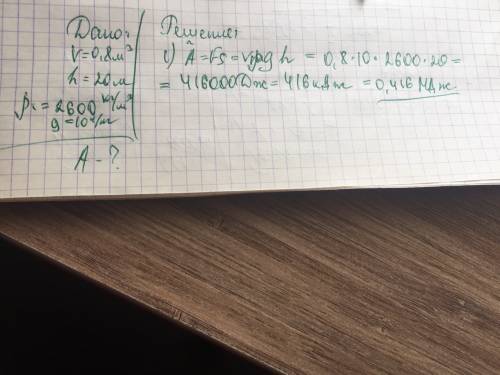 Дано:
V=0,8м³
h=20м
ρ=2600 кг/м³
g=10 н/кг
A-?
Решение:
1) A=FS=Vρg h = 0,8·10·2600·20=
= 416000Дж=416кДж = 0,416 МДж